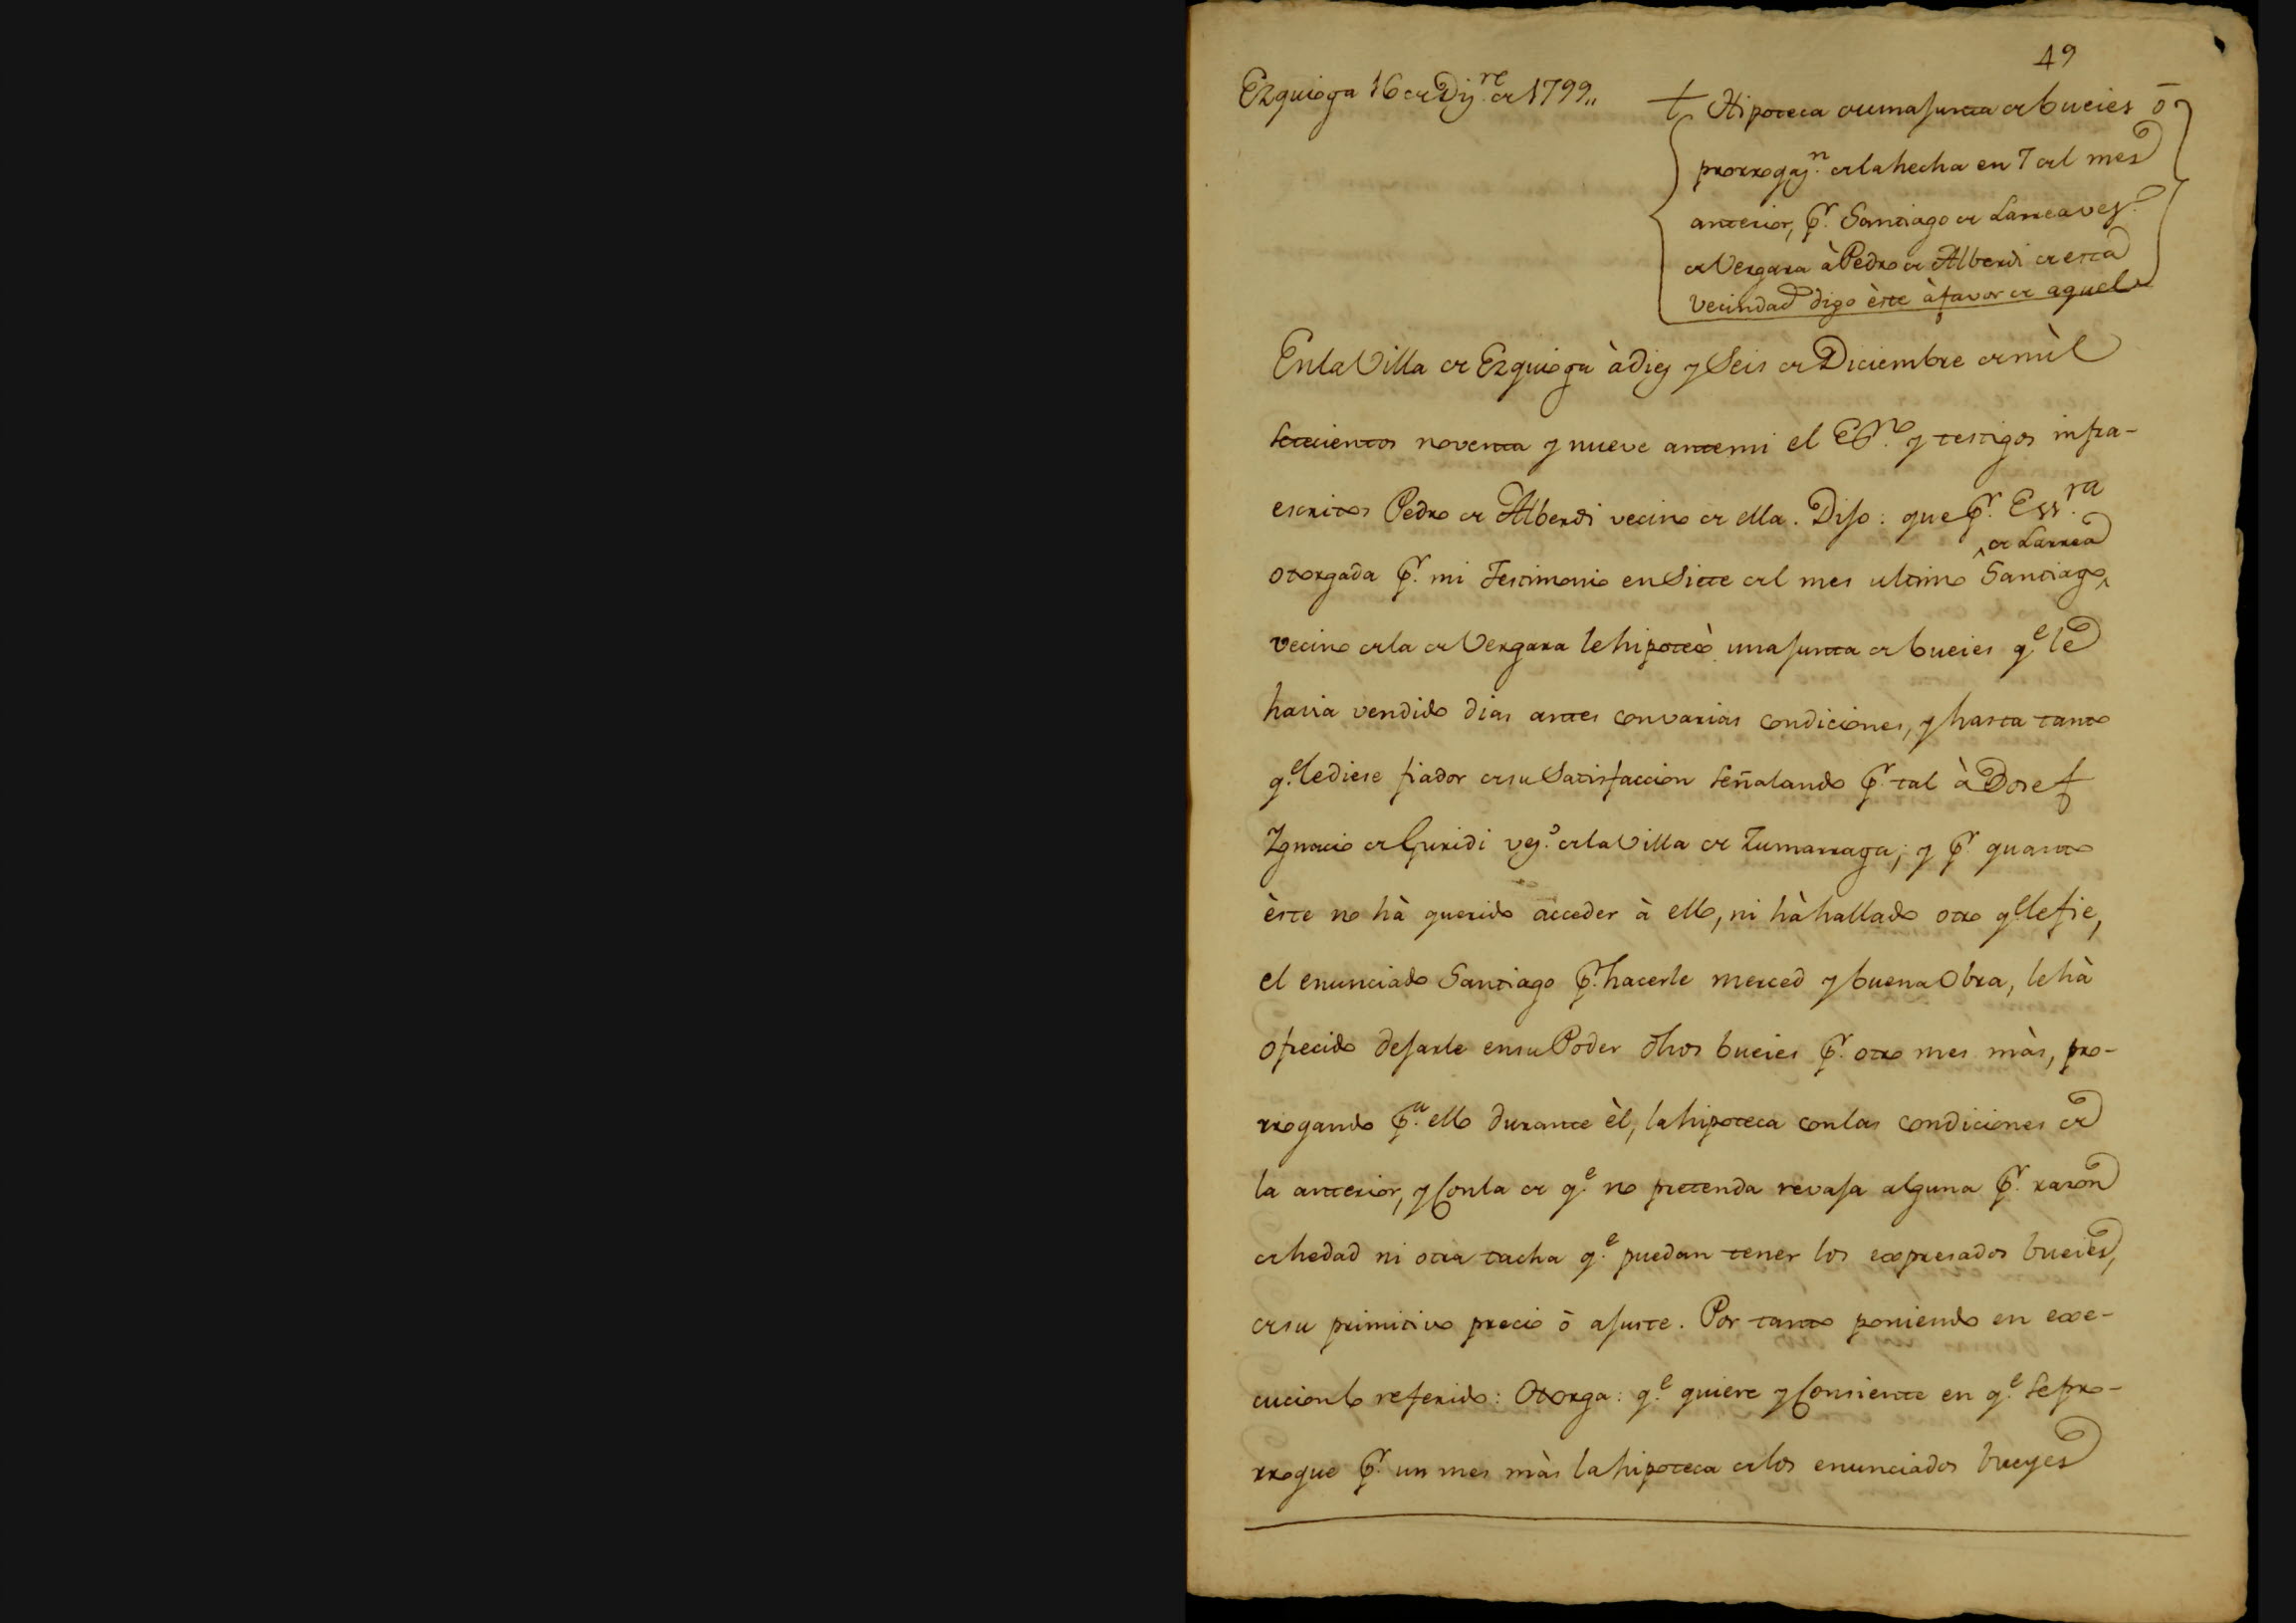 49
Ezquioga 16 de Dij.re de 1799,,
Hipoteca de una junta de bueies ō
prorrogaz.n de la hecha en 7 del mes
anterior, p.r Santiago de Larrea vez.o
de Vergara à Pedro de Alberdi de esta
vecindad digo èste à favor de aquel
En la Villa de Ezquioga à diez y Seis de Diciembre de mìl
setecientos noventa y nueve ante mi el Ess.no y testigos infra-
escritos Pedro de Alberdi vecino de ella. Dijo: que p.r Ess.ra
de Larrea
otorgada p.r mi Testimonio en Siete del mes ultimo Santiago
vecino de la de Vergara le hipotecò una junta de bueies q.e le
havia vendido dias antes con varias condiciones, y hasta tanto
q.e le diese fiador de su Satisfaccion señalando p.r tal à Josef
Ignacio de Guridi vez.o de la Villa de Zumarraga; y p.r quanto
èste no hà querido acceder à ello, ni hà hallado otro q.e le fie,
el enunciado Santiago p.r hacerle merced y buena Obra, le hà
ofrecido dejarle en su Poder dhos bueies p.r otro mes màs, pro-
rrogando p.a ello durante èl, la hipoteca con las condiciones de
la anterior, y Con la de q.e no pretenda revaja alguna p.r razon
de hedad ni otra tacha q.e puedan tener los expresados bueies,
de su primitivo precio ō ajuste. Por tanto poniendo en exe-
cucion lo referido: Otorga: q.e quiere y Consiente en q.e se pro-
rrogue p.r un mes màs la hipoteca de los enunciados bueyes